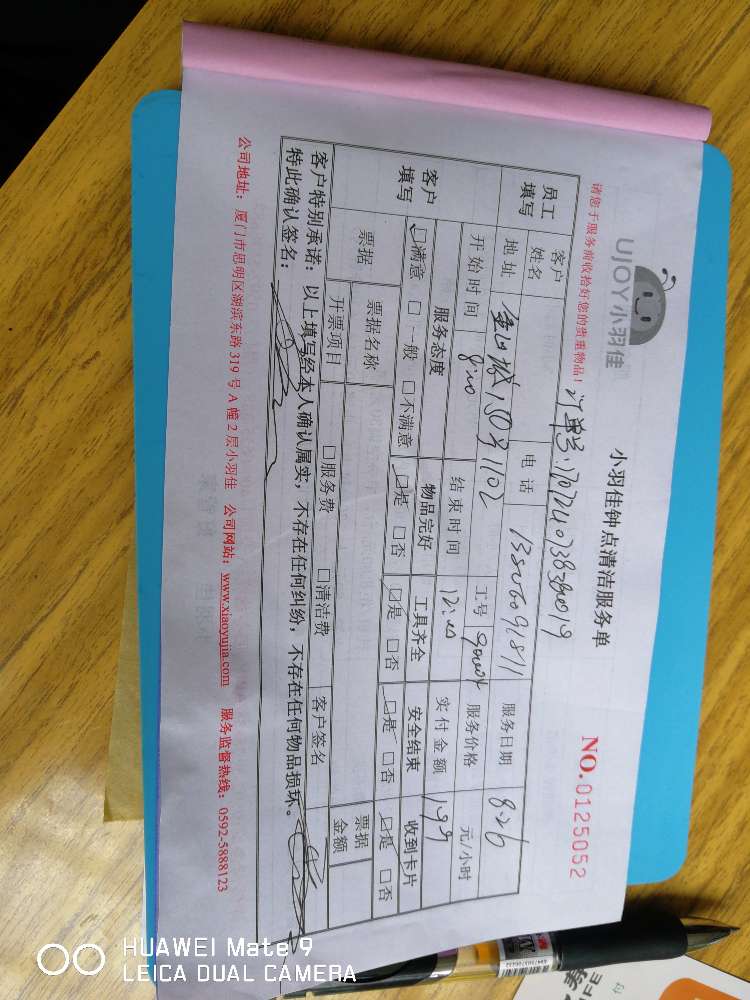 UJOY小羽佳
小羽佳钟点清洁服务单
NO.0125052
请您于服务前收拾好您的贵重物品!
员工填写
客户姓名
电话 13806091811
服务日期 8.26
地址
工号
服务价格 元/小时
客户填写
开始时间 8:00
结束时间 12:00
实付金额 199
服务态度 物品完好 工具齐全 安全结束 收到卡片
□满意 □一般 □不满意 □是 □否 □是 □否 □是 □否 □是 □否
票据 票据名称 □服务费 □清洁费 客户签名 票据金额
开票项目
客户特别承诺:以上填写经本人确认属实,不存在任何纠纷,不存在任何物品损坏。
特此确认签名:
公司地址:厦门市思明区湖滨东路319号A幢2层小羽佳 公司网站:www.xiaoyujia.com 服务监督热线:0592-5888123
HUAWEI Mate 9
LEICA DUAL CAMERA